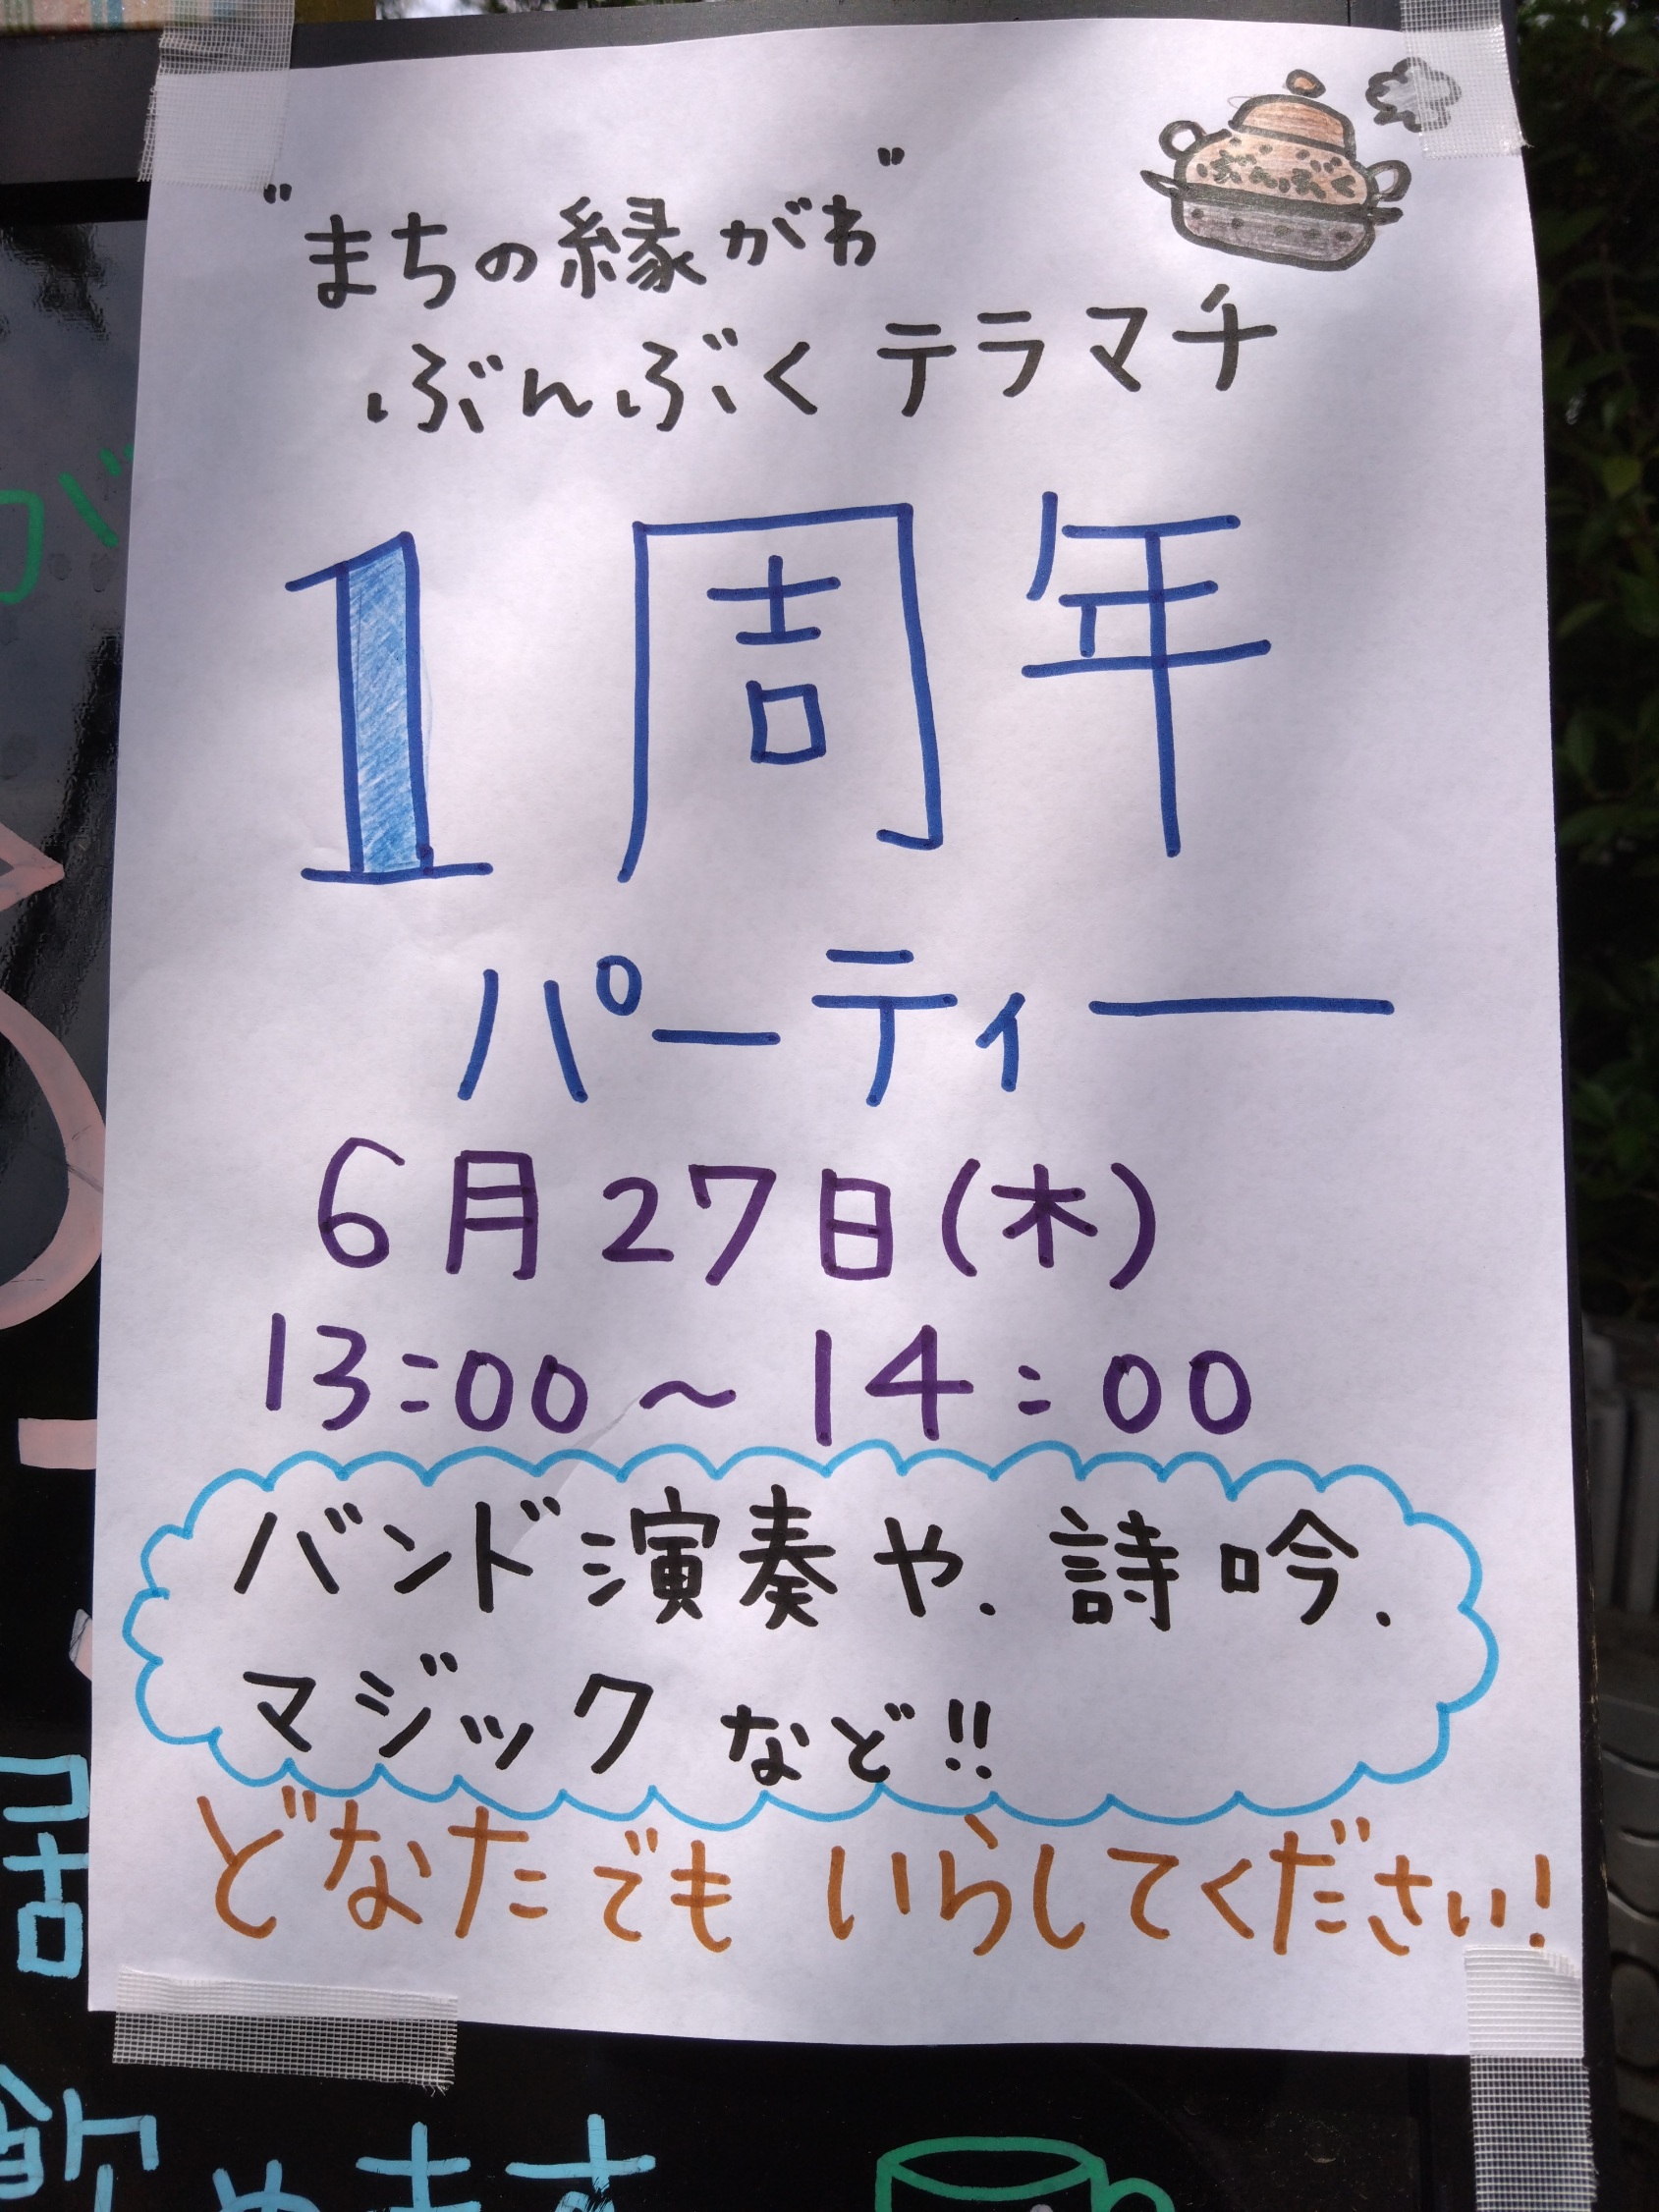 ぶんぶく
"まちの縁がわ"
ぶんぶくテラマチ
1周年
パーティー
6月27日(木)
13:00～14:00
バンド演奏や、詩吟、
マジックなど!!
どなたでも いらしてください!
飲めます